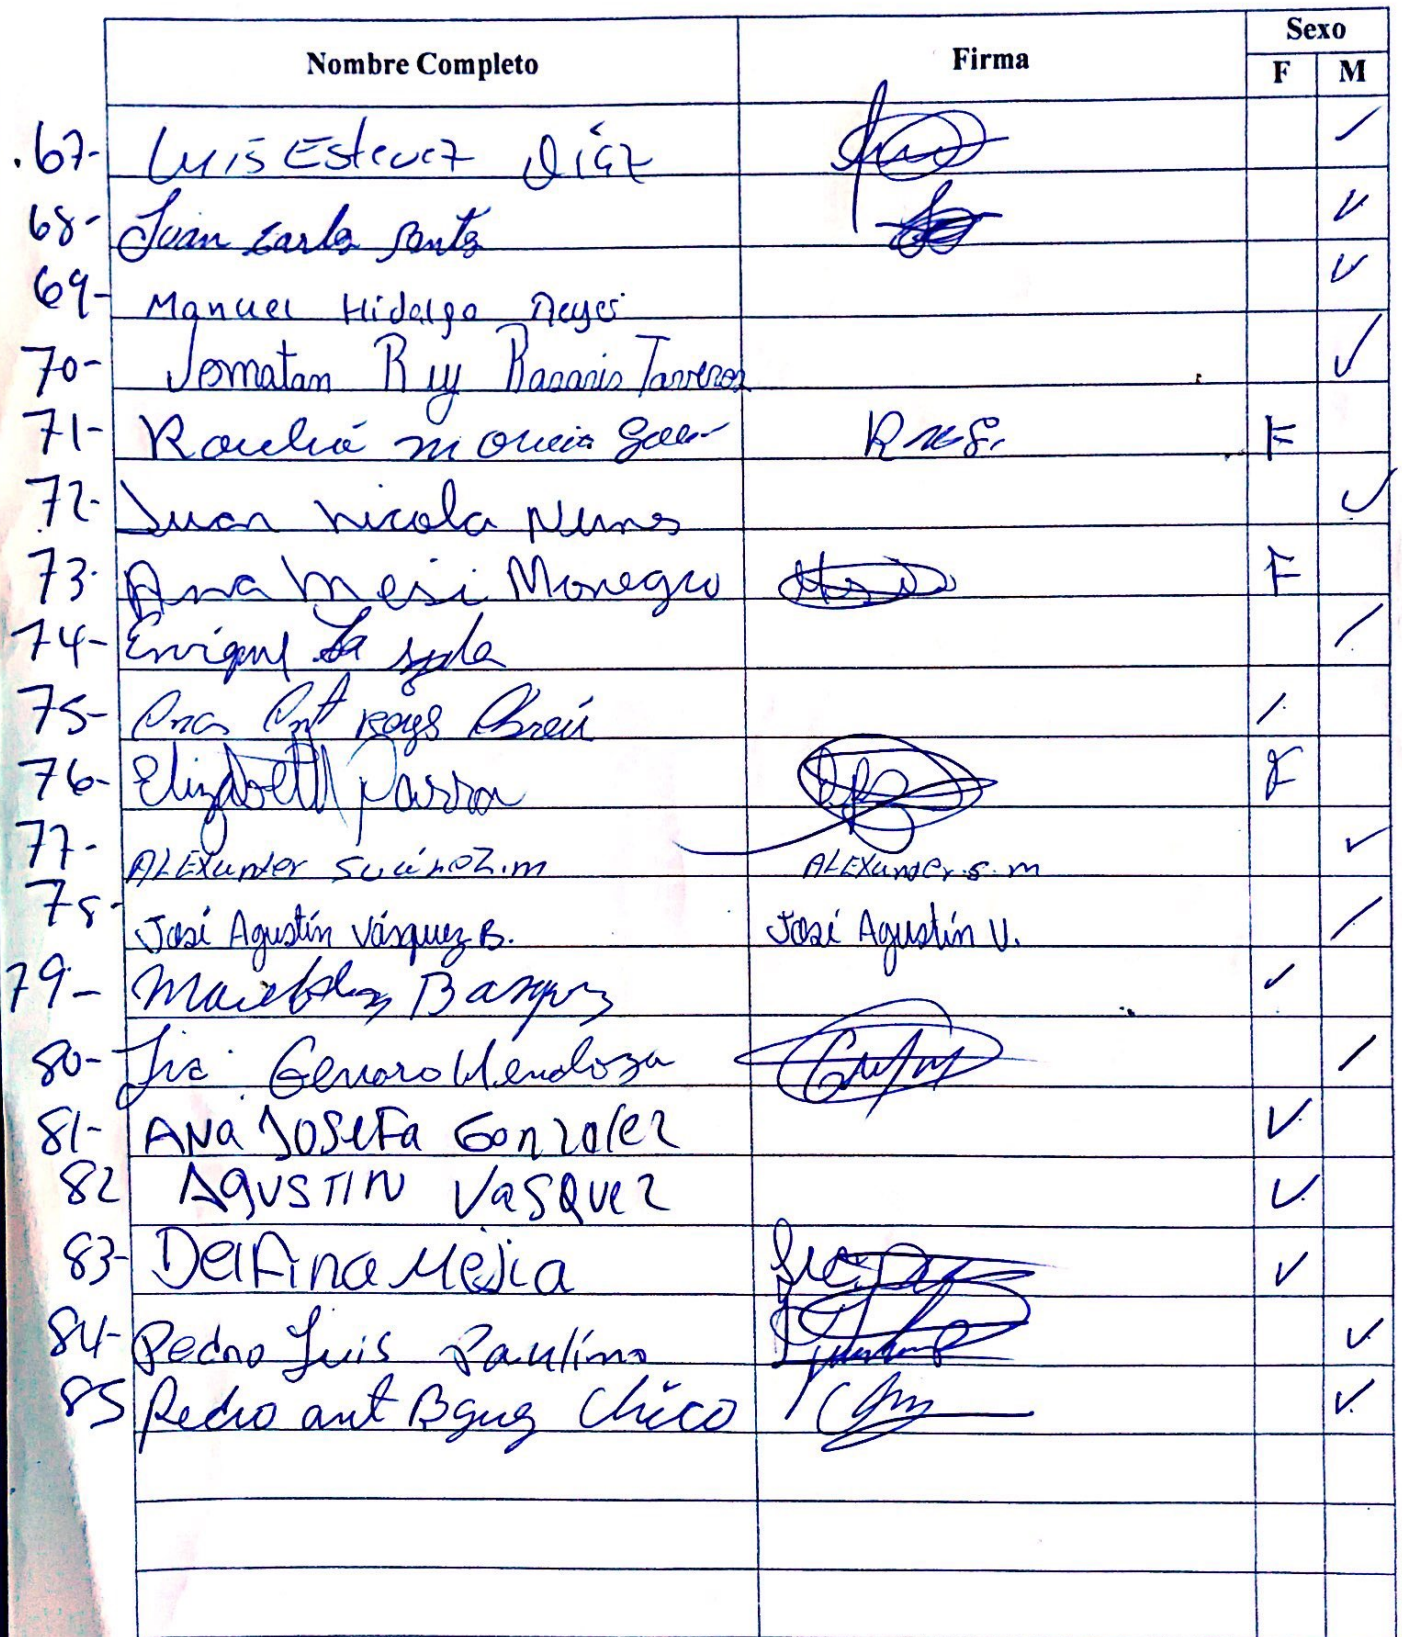 Nombre Completo Firma Sexo
F M
67- Luis Estevez Díaz
68- Juan Carlo Santo
69- Manuel Hidalgo Reyes
70- Jomatan Ruy Taveras
71- F
72- Juan Nicola Nunes
73- Ana Mesi Monegro F
74- Enrique
75- Ana Ant Reys Abreú
76- Elizabeth Parra F
77- ALEXander Suánez.m ALEXander.s.m
78- José Agustín Vásquez B. José Agustín V.
79-
80- Lic. Genaro Mendoza
81- ANa JOSEFa Gonzalez
82 AgUSTIN VaSQUez
83- Delfina Mejia
84- Pedro Luis Paulino
85 Pedro ant Chico